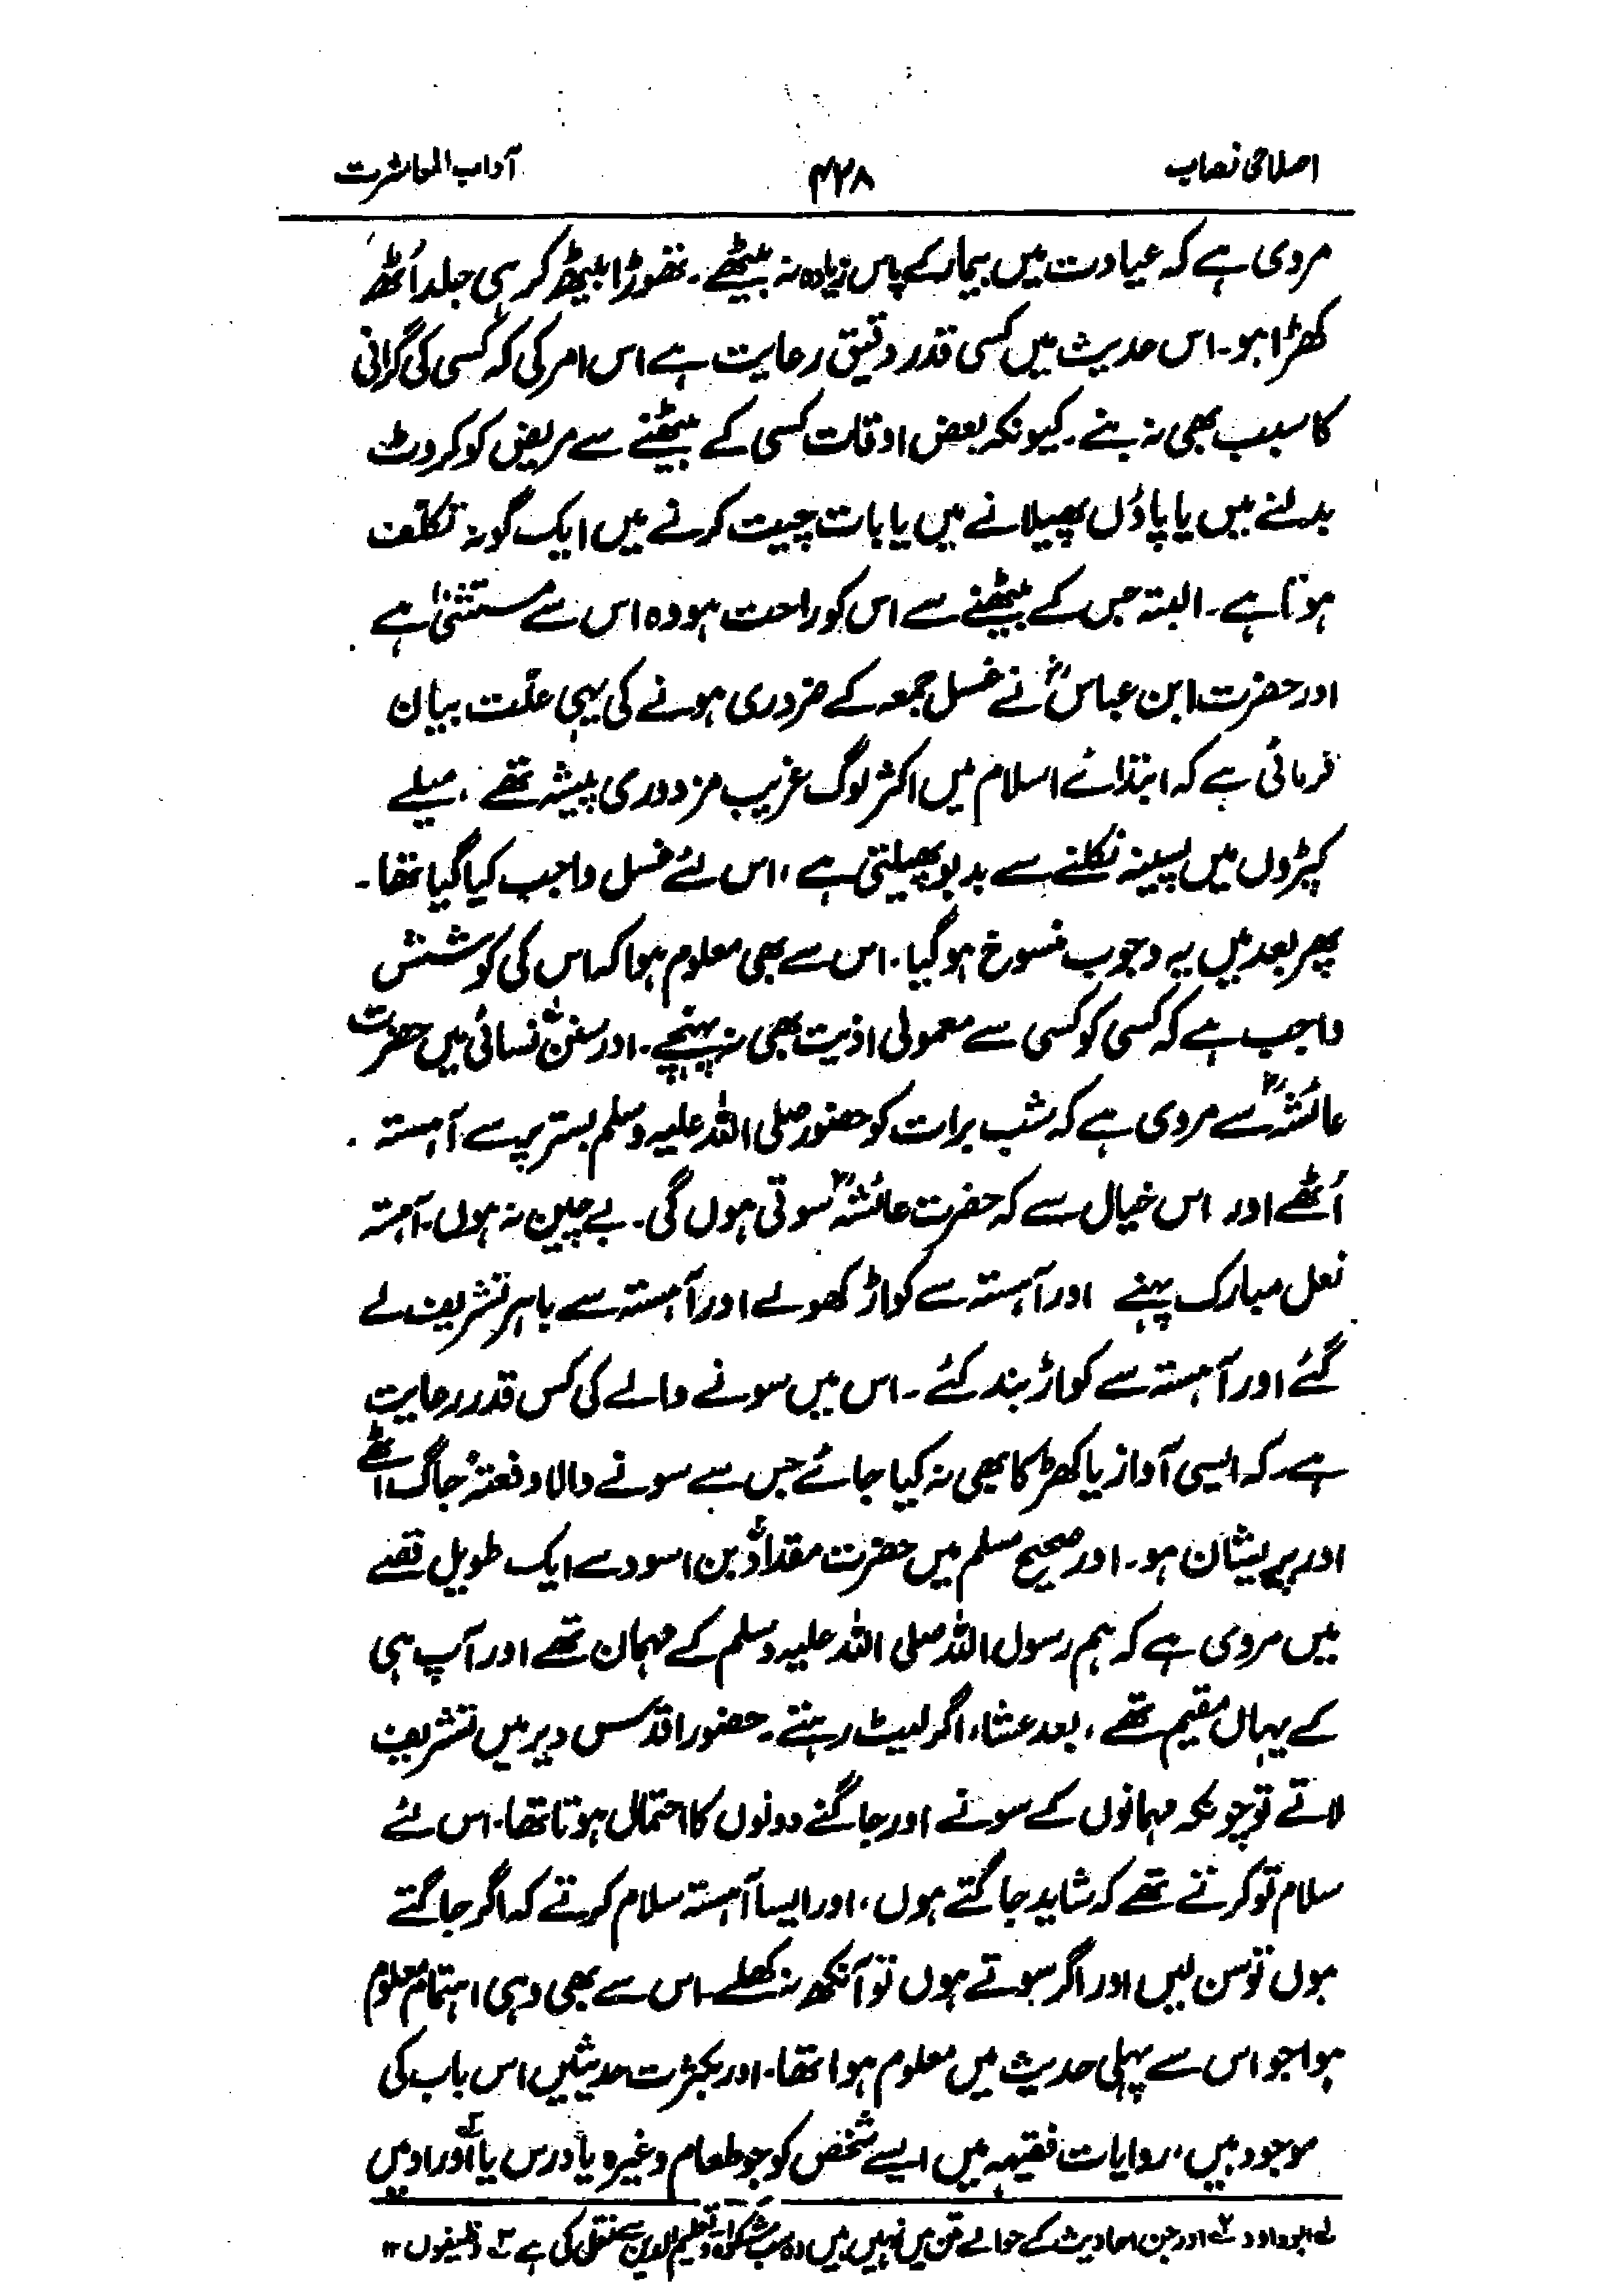 اصلاحی نصاب ۴۲۸ آداب المعاشرت
مروی ہے کہ عیادت میں بیمار کے پاس زیادہ نہ بیٹھے۔ تھوڑا بیٹھ کر ہی جلد اُٹھ
کھڑا ہو۔ اس حدیث میں کسی قدر دقیق رعایت ہے اس امر کی کہ کسی کی گرانی
کا سبب بھی نہ بنے۔ کیونکہ بعض اوقات کسی کے بیٹھنے سے مریض کو کروٹ
بدلنے میں یا پاؤں پھیلانے میں یا بات چیت کرنے میں ایک گونہ تکلّف
ہوتا ہے۔ البتہ جس کے بیٹھنے سے اس کو راحت ہو وہ اس سے مستثنیٰ ہے
اور حضرت ابن عباسؓ نے غسل جمعہ کے ضروری ہونے کی یہی علّت بیان
فرمائی ہے کہ ابتدائے اسلام میں اکثر لوگ غریب مزدوری پیشہ تھے، میلے
کپڑوں میں پسینہ نکلنے سے بدبو پھیلتی ہے، اس لئے غسل واجب کیا گیا تھا۔
پھر بعد میں یہ وجوب منسوخ ہو گیا۔ اس سے بھی معلوم ہوا کہ اس کی کوشش
واجب ہے کہ کسی کو کسی سے معمولی اذیت بھی نہ پہنچے۔ اور سنن نسائی میں حضرت
عائشہؓ سے مروی ہے کہ شب برات کو حضور صلی اللہ علیہ وسلم بستر پر سے آہستہ
اُٹھے اور اس خیال سے کہ حضرت عائشہؓ سوتی ہوں گی۔ بے چین نہ ہوں۔ آہستہ
نعل مبارک پہنے اور آہستہ سے کواڑ کھولے اور آہستہ سے باہر تشریف لے
گئے اور آہستہ سے کواڑ بند کئے۔ اس میں سونے والے کی کس قدر رعایت
ہے۔ کہ ایسی آواز یا کھڑکا بھی نہ کیا جائے جس سے سونے والا دفعتہً جاگ اٹھے
اور پریشان ہو۔ اور صحیح مسلم میں حضرت مقدادؓ بن اسود سے ایک طویل قصے
میں مروی ہے کہ ہم رسول اللہ صلی اللہ علیہ وسلم کے مہمان تھے اور آپ ہی
کے یہاں مقیم تھے، بعد عشاء اگر لیٹ رہتے۔ حضور اقدس دیر میں تشریف
لاتے تو چونکہ مہمانوں کے سونے اور جاگنے دونوں کا احتمال ہوتا تھا۔ اس لئے
سلام تو کرتے تھے کہ شاید جاگتے ہوں، اور ایسا آہستہ سلام کرتے کہ اگر جاگتے
ہوں تو سن لیں اور اگر سوتے ہوں تو آنکھ نہ کھلے۔ اس سے بھی وہی اہتمام معلوم
ہوا جو اس سے پہلی حدیث میں معلوم ہوا تھا۔ اور بکثرت حدیثیں اس باب کی
موجود ہیں، روایات فقیہہ میں ایسے شخص کو جو طعام وغیرہ یا درس یا اوراد میں
لے ابوداود ۲ے اور جن احادیث کے حوالے متن میں نہیں ہیں وہ سب مشکوٰۃ و تعلیم الدین سے نقل کی ہے ۳ے وظیفوں ۱۲